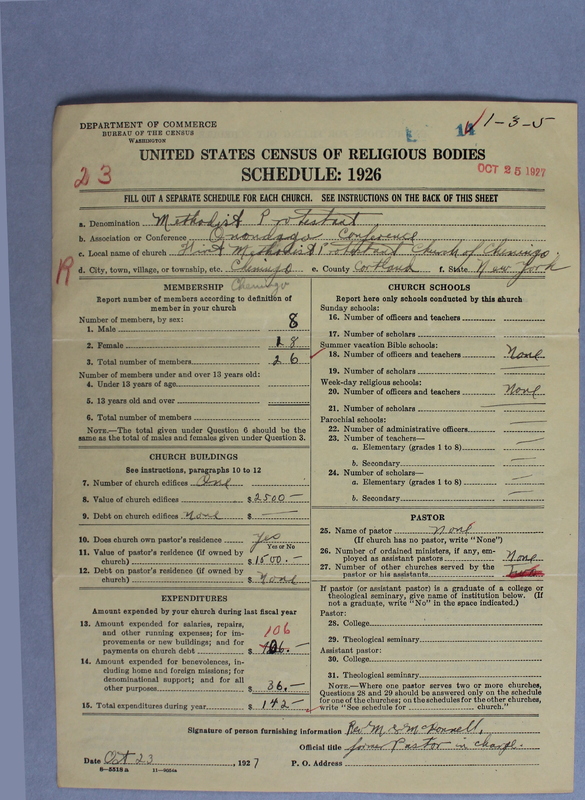 DEPARTMENT OF COMMERCE
BUREAU OF THE CENSUS
WASHINGTON
11 1-3-5
UNITED STATES CENSUS OF RELIGIOUS BODIES
SCHEDULE: 1926
23
OCT 25 1927
FILL OUT A SEPARATE SCHEDULE FOR EACH CHURCH. SEE INSTRUCTIONS ON THE BACK OF THIS SHEET
a. Denomination Methodist Protestant
b. Association or Conference Onondaga Conference
c. Local name of church First Methodist Protestant Church of Cheningo
R d. City, town, village, or township, etc. Cheningo e. County Cortland f. State New York
MEMBERSHIP Cheningo
Report number of members according to definition of member in your church
Number of members, by sex:
1. Male 8
2. Female 18
3. Total number of members 26
Number of members under and over 13 years old:
4. Under 13 years of age
5. 13 years old and over
6. Total number of members
NOTE.—The total given under Question 6 should be the same as the total of males and females given under Question 3.
CHURCH BUILDINGS
See instructions, paragraphs 10 to 12
7. Number of church edifices One
8. Value of church edifices $ 2500 —
9. Debt on church edifices None $ —
10. Does church own pastor's residence? Yes
Yes or No
11. Value of pastor's residence (if owned by church) $ 1500.—
12. Debt on pastor's residence (if owned by church) $ None
EXPENDITURES
Amount expended by your church during last fiscal year
13. Amount expended for salaries, repairs, and other running expenses; for improvements or new buildings; and for payments on church debt $ 106.—
106
14. Amount expended for benevolences, including home and foreign missions; for denominational support; and for all other purposes $ 36.—
15. Total expenditures during year $ 142 —
CHURCH SCHOOLS
Report here only schools conducted by this church
Sunday schools:
16. Number of officers and teachers
17. Number of scholars
Summer vacation Bible schools:
18. Number of officers and teachers None
19. Number of scholars —
Week-day religious schools:
20. Number of officers and teachers None
21. Number of scholars —
Parochial schools:
22. Number of administrative officers —
23. Number of teachers—
a. Elementary (grades 1 to 8) —
b. Secondary —
24. Number of scholars—
a. Elementary (grades 1 to 8) —
b. Secondary —
PASTOR
25. Name of pastor None
(If church has no pastor, write "None")
26. Number of ordained ministers, if any, employed as assistant pastors None
27. Number of other churches served by the pastor or his assistants
If pastor (or assistant pastor) is a graduate of a college or theological seminary, give name of institution below. (If not a graduate, write "No" in the space indicated.)
Pastor:
28. College
29. Theological seminary
Assistant pastor:
30. College
31. Theological seminary
NOTE.—Where one pastor serves two or more churches, Questions 28 and 29 should be answered only on the schedule for one of the churches; on the schedules for the other churches, write "See schedule for church."
Signature of person furnishing information Rev M. E. McDonnell,
Official title former Pastor in charge.
Date Oct 23, 1927 P. O. Address
8—5518a 11—9024a